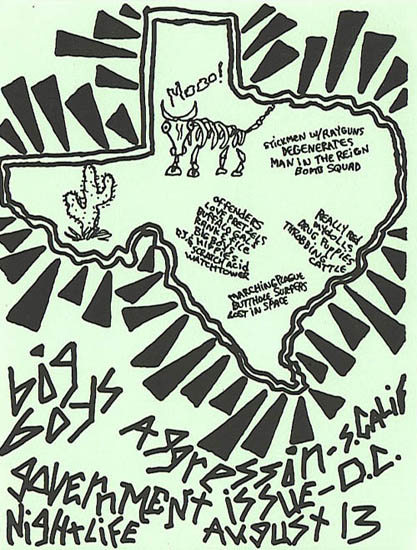 Mooo!
STICKMEN W/RAYGUNS
DEGENERATES
MAN IN THE REIGN
BOMB SQUAD
OFFENDERS
LOVE PRETZEL
SCRATCH ACID
WATCHTOWER
REALLY RED
DRUG PUPPIES
THROBBING
CATTLE
MARCHING PLAGUE
BUTTHOLE SURFERS
LOST IN SPACE
big
boys
AgRESSION-S.CALIF
gOVERNMENT issue-D.C.
NigHtLIFE AUgUST 13